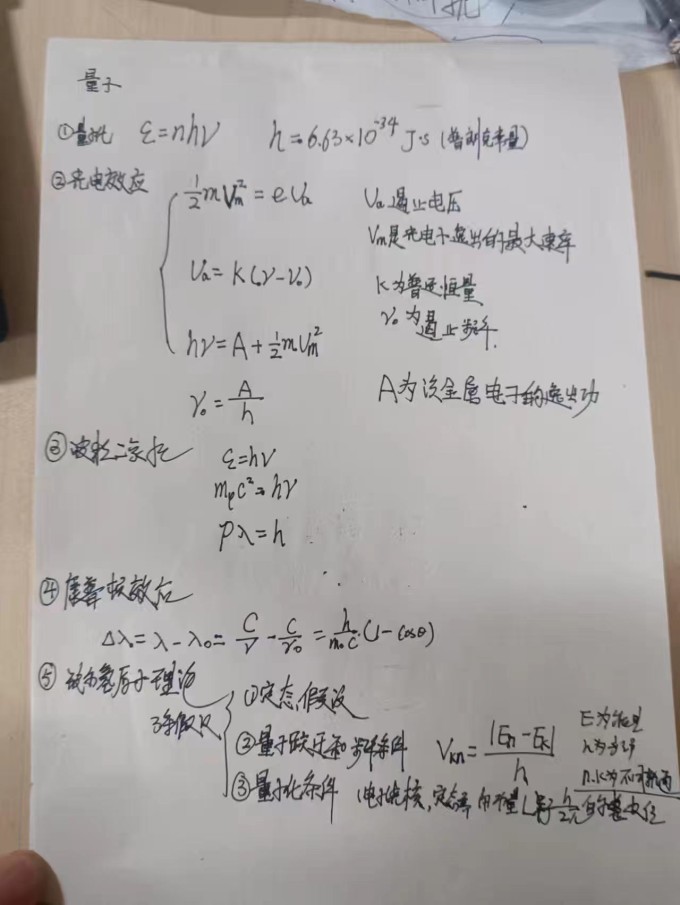 量子
①量子化 ε=nhν h=6.63×10⁻³⁴ J·s (普朗克常量)
②光电效应 ½mVₘ²=eUₐ Uₐ遏止电压
Vₘ是光电子逸出的最大速率
Uₐ=K(ν-ν₀) K为普适恒量
ν₀为遏止频率.
hν=A+½mVₘ²
ν₀=A/h A为该金属电子的逸出功
③波粒二象性 ε=hν
mₚc²=hν
Pλ=h
④康普顿效应
Δλ=λ-λ₀=C/ν-C/ν₀=h/m₀c·(1-cosθ)
⑤ 氢原子理论
3条假设 ①定态假设
②量子跃迁和频率条件 Vₖₙ=|Eₙ-Eₖ|/h E为能量
n.k为不同
③量子化条件 (电子绕核,定态 L等于h/2π的整数倍